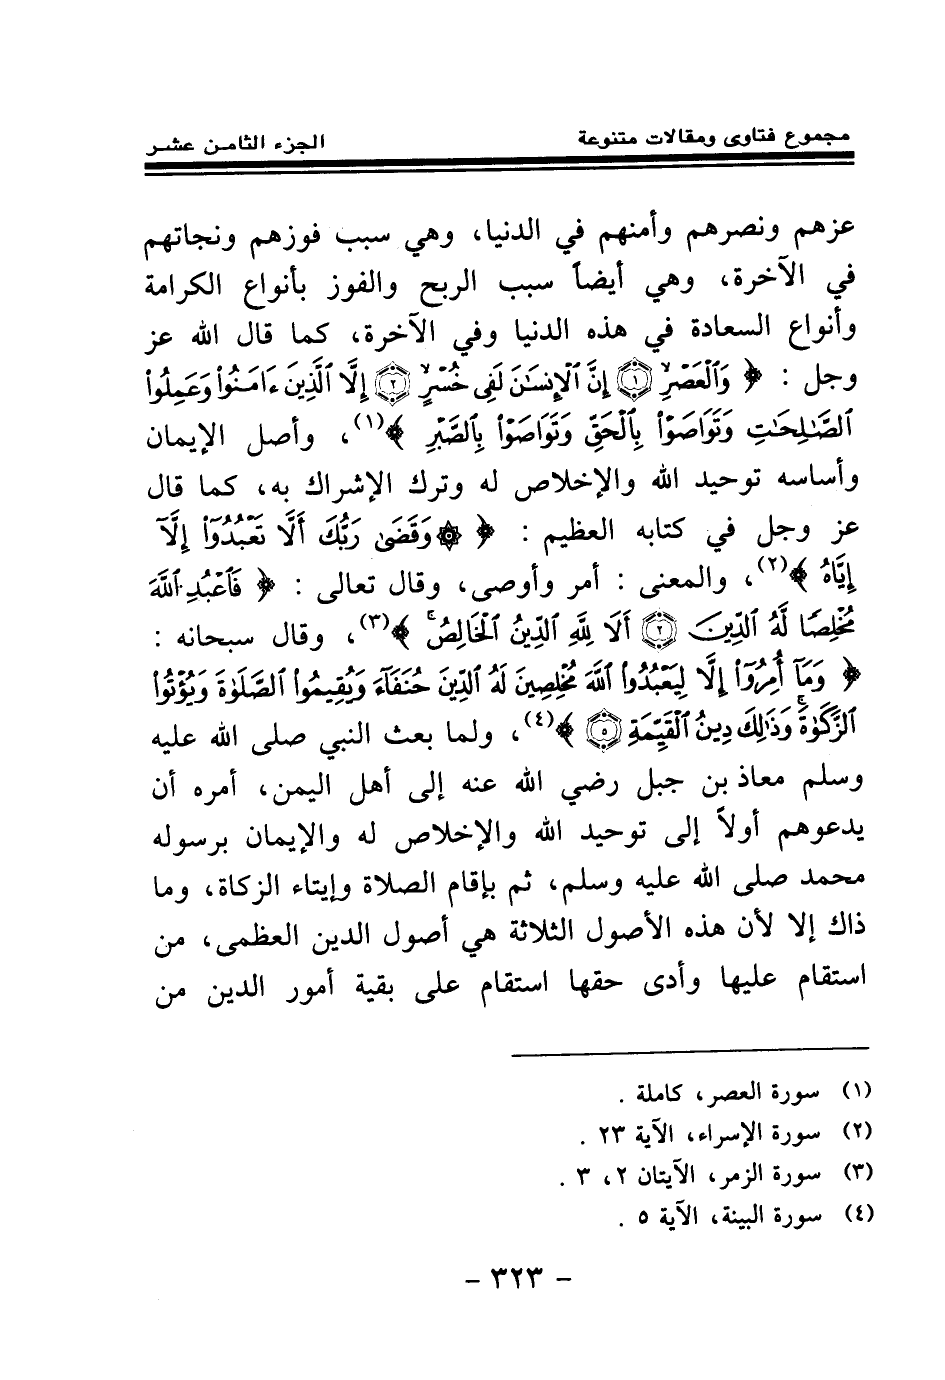 مجموع فتاوى ومقالات متنوعة الجزء الثامن عشر
عزهم ونصرهم وأمنهم في الدنيا، وهي سبب فوزهم ونجاتهم
في الآخرة، وهي أيضاً سبب الربح والفوز بأنواع الكرامة
وأنواع السعادة في هذه الدنيا وفي الآخرة، كما قال الله عز
وجل : ﴿ وَٱلۡعَصۡرِ ۝١ إِنَّ ٱلۡإِنسَٰنَ لَفِي خُسۡرٍ ۝٢ إِلَّا ٱلَّذِينَ ءَامَنُواْ وَعَمِلُواْ
ٱلصَّٰلِحَٰتِ وَتَوَاصَوۡاْ بِٱلۡحَقِّ وَتَوَاصَوۡاْ بِٱلصَّبۡرِ ﴾(١)، وأصل الإيمان
وأساسه توحيد الله والإخلاص له وترك الإشراك به، كما قال
عز وجل في كتابه العظيم : ﴿ ۞وَقَضَىٰ رَبُّكَ أَلَّا تَعۡبُدُوٓاْ إِلَّآ
إِيَّاهُ ﴾(٢)، والمعنى : أمر وأوصى، وقال تعالى : ﴿ فَٱعۡبُدِ ٱللَّهَ
مُخۡلِصٗا لَّهُ ٱلدِّينَ ۝٢ أَلَا لِلَّهِ ٱلدِّينُ ٱلۡخَالِصُۚ ﴾(٣)، وقال سبحانه :
﴿ وَمَآ أُمِرُوٓاْ إِلَّا لِيَعۡبُدُواْ ٱللَّهَ مُخۡلِصِينَ لَهُ ٱلدِّينَ حُنَفَآءَ وَيُقِيمُواْ ٱلصَّلَوٰةَ وَيُؤۡتُواْ
ٱلزَّكَوٰةَۚ وَذَٰلِكَ دِينُ ٱلۡقَيِّمَةِ ۝٥ ﴾(٤)، ولما بعث النبي صلى الله عليه
وسلم معاذ بن جبل رضي الله عنه إلى أهل اليمن، أمره أن
يدعوهم أولاً إلى توحيد الله والإخلاص له والإيمان برسوله
محمد صلى الله عليه وسلم، ثم بإقام الصلاة وإيتاء الزكاة، وما
ذاك إلا لأن هذه الأصول الثلاثة هي أصول الدين العظمى، من
استقام عليها وأدى حقها استقام على بقية أمور الدين من
(١) سورة العصر، كاملة .
(٢) سورة الإسراء، الآية ٢٣ .
(٣) سورة الزمر، الآيتان ٢، ٣ .
(٤) سورة البينة، الآية ٥ .
- ٣٢٣ -